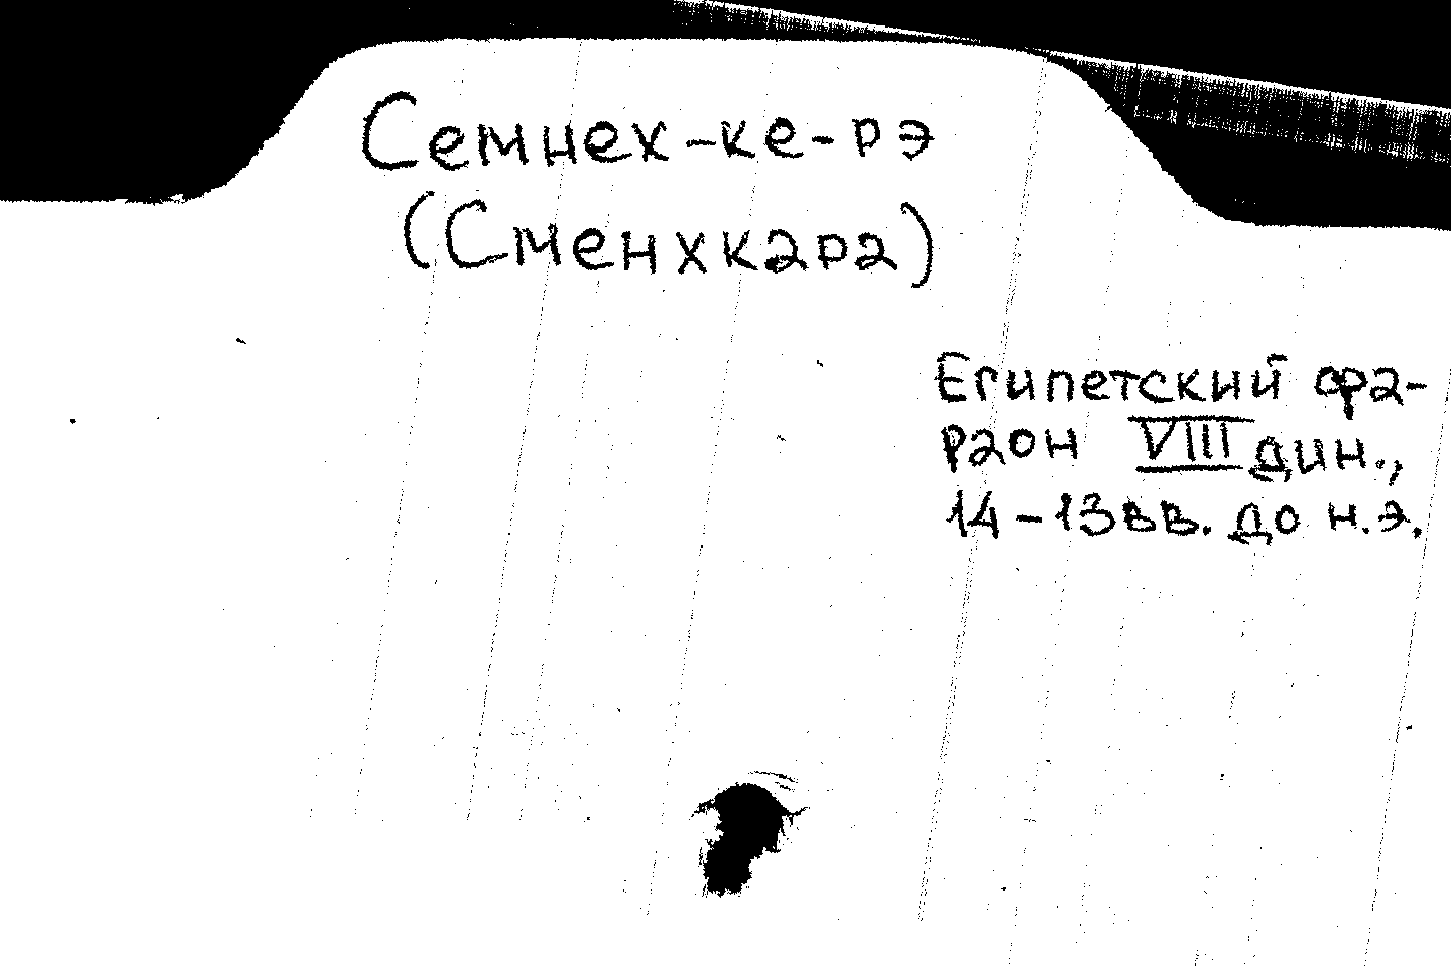 Семнех-ке-рэ
(Сменхкара)
Египетский фа-
раон VIII дин.,
14-13 вв. до н.э.